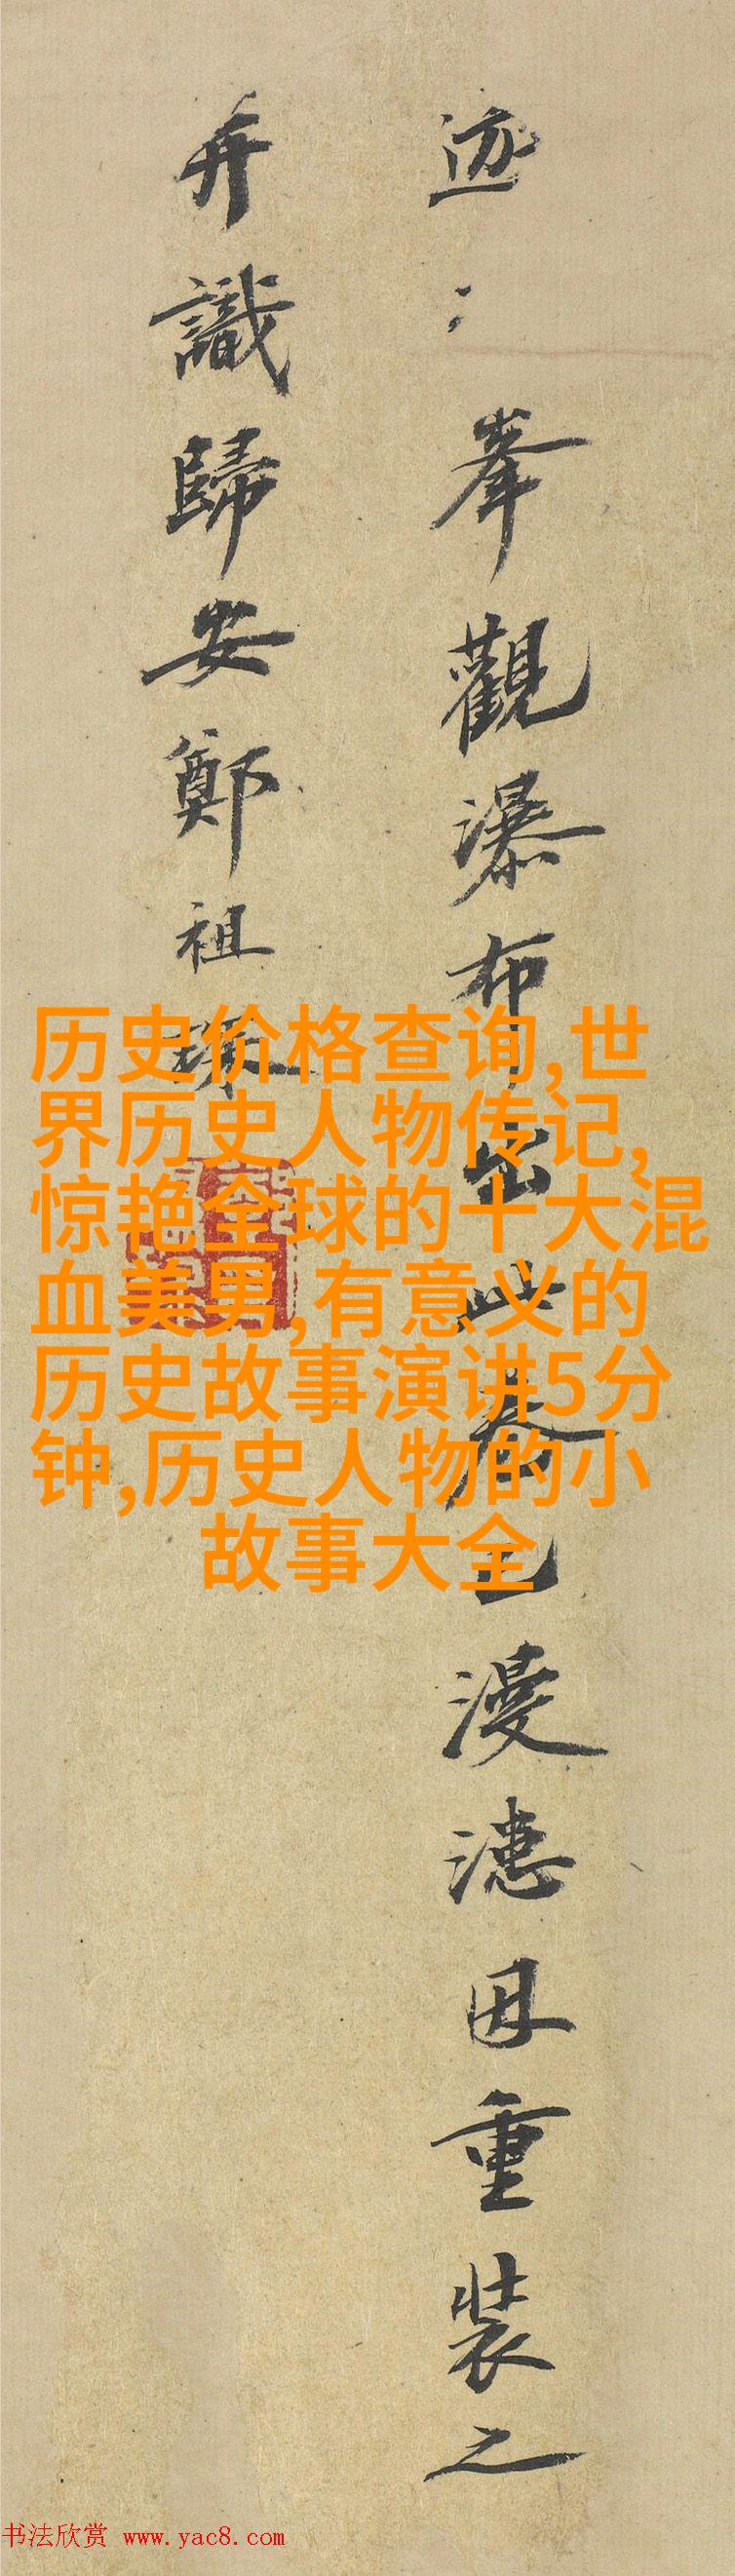 迹〻峯觀瀑布出此卷已漫漶因重裝之
并識歸安鄭祖琛
历史价格查询,世
界历史人物传记,
惊艳全球的十大混
血美男,有意义的
历史故事演讲5分
钟,历史人物的小
故事大全
书法欣赏 www.yac8.com